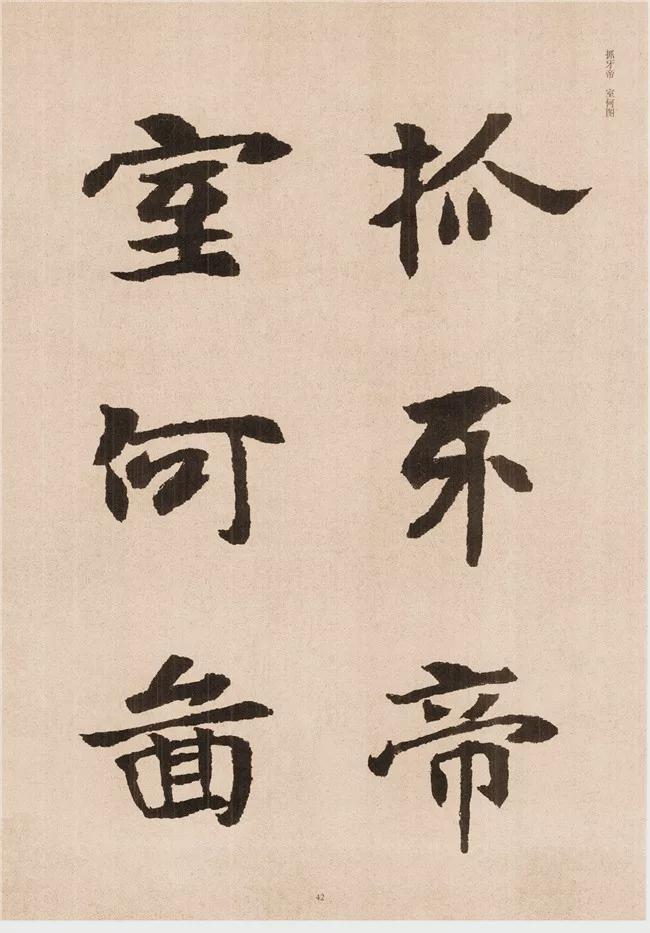 抓牙帝 室何图
抓牙帝
室何啚
42